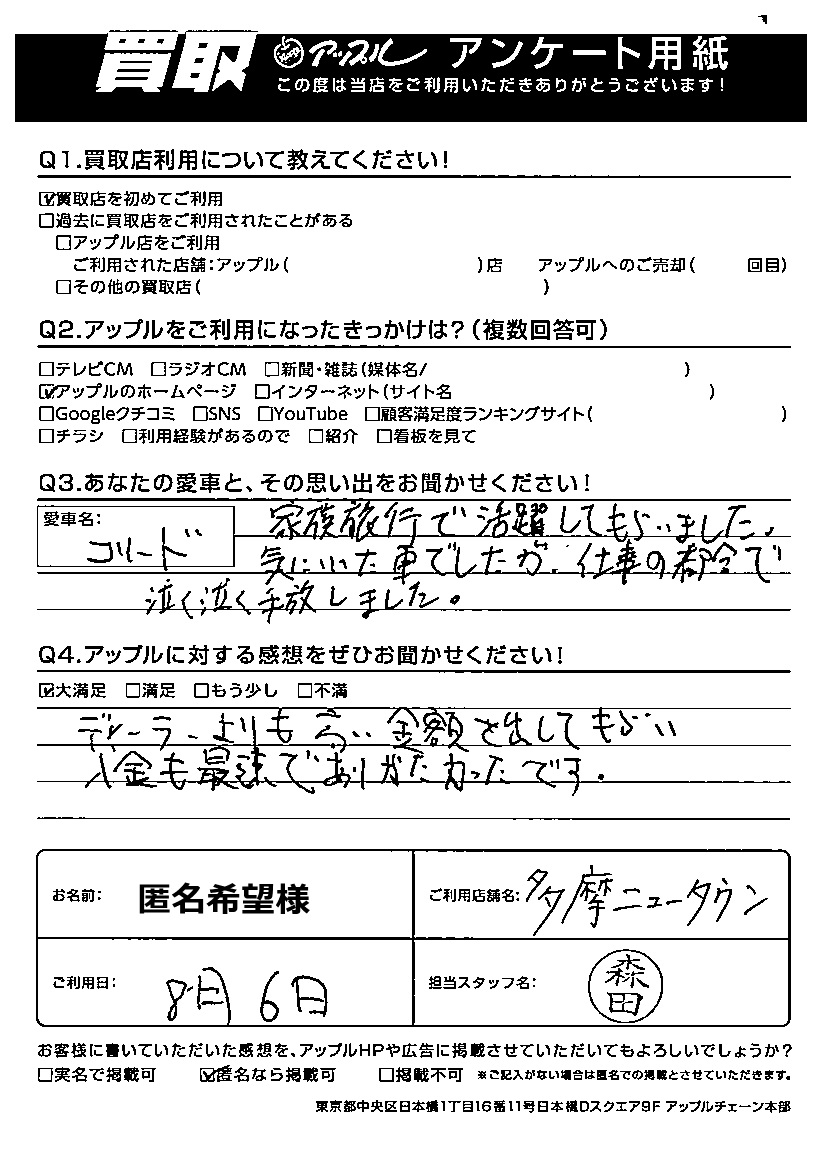 買取 アップル アンケート用紙
この度は当店をご利用いただきありがとうございます!
Q1.買取店利用について教えてください!
☑買取店を初めてご利用
□過去に買取店をご利用されたことがある
□アップル店をご利用
ご利用された店舗:アップル( )店 アップルへのご売却( 回目)
□その他の買取店( )
Q2.アップルをご利用になったきっかけは?(複数回答可)
□テレビCM □ラジオCM □新聞・雑誌(媒体名/ )
☑アップルのホームページ □インターネット(サイト名 )
□Googleクチコミ □SNS □YouTube □顧客満足度ランキングサイト( )
□チラシ □利用経験があるので □紹介 □看板を見て
Q3.あなたの愛車と、その思い出をお聞かせください!
愛車名:
コリード
家族旅行で活躍してもらいました。
気にいた車でしたが、仕事の都合で
泣く泣く手放しました。
Q4.アップルに対する感想をぜひお聞かせください!
☑大満足 □満足 □もう少し □不満
ディーラーよりも高い金額を出してもらい
入金も最速でありがたかったです。
お名前: 匿名希望様 ご利用店舗名: 多摩ニュータウン
ご利用日: 8月6日 担当スタッフ名: 森田
お客様に書いていただいた感想を、アップルHPや広告に掲載させていただいてもよろしいでしょうか?
□実名で掲載可 ☑匿名なら掲載可 □掲載不可 ※ご記入がない場合は匿名での掲載とさせていただきます。
東京都中央区日本橋1丁目16番11号日本橋Dスクエア9F アップルチェーン本部